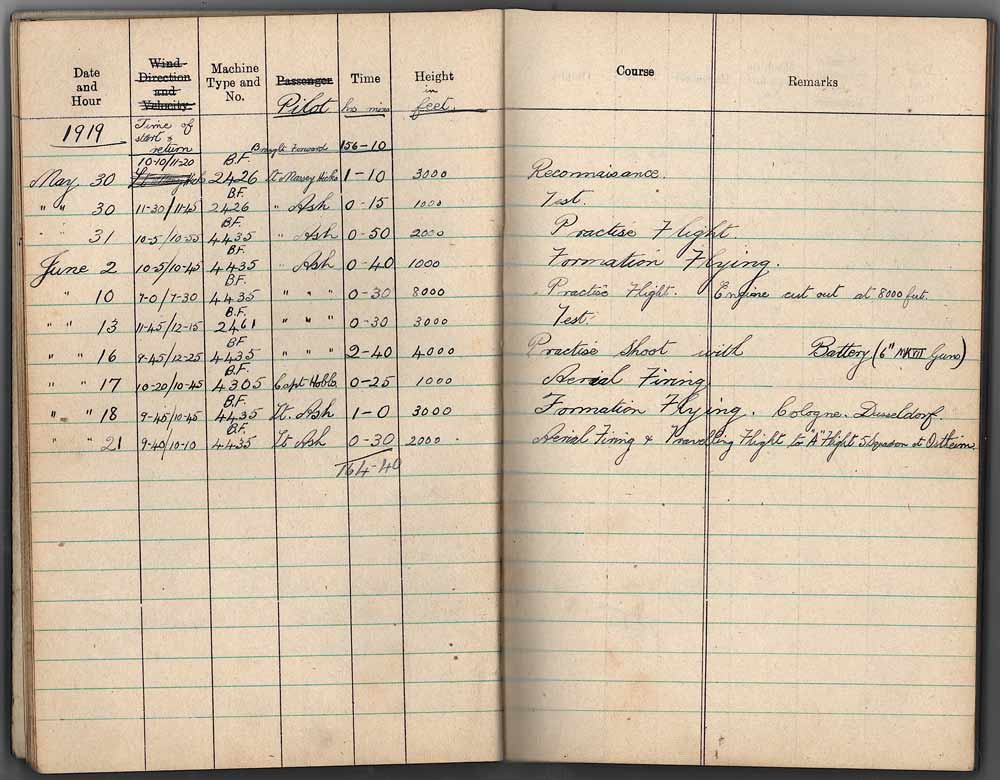 Date and Hour Wind Direction and Velocity Machine Type and No. Passenger Time Height Course Remarks
Pilot hrs mins in feet
1919 Time of start & return Brought Forward 156-10
May 30 10-10/11-20 B.F. 2426 Lt Massey Hicks 1-10 3000 Reconnaisance.
" " 30 11-30/11-45 B.F. 2426 " Ash 0-15 1000 Test.
31 10-5/10-55 B.F. 4435 " Ash 0-50 2000 Practise Flight.
June 2 10-5/10-45 B.F. 4435 " Ash 0-40 1000 Formation Flying.
" 10 7-0/7-30 B.F. 4435 " " " 0-30 8000 Practise Flight. Engine cut out at 8000 feet.
" " 13 11-45/12-15 B.F. 2461 " " " 0-30 3000 Test.
" " 16 9-45/12-25 BF 4435 " " " 2-40 4000 Practise Shoot with Battery (6" MKVII Guns)
" " 17 10-20/10-45 B.F. 4305 Capt Hobbs 0-25 1000 Aerial Firing
" " 18 9-45/10-45 B.F. 4435 Lt. Ash 1-0 3000 Formation Flying. Cologne. Dusseldorf.
" " 21 9-40/10-10 B.F. 4435 Lt Ash 0-30 2000 Aerial Firing & Travelling Flight to "A" Flight 5 Sqadron at Ostheim.
164-40